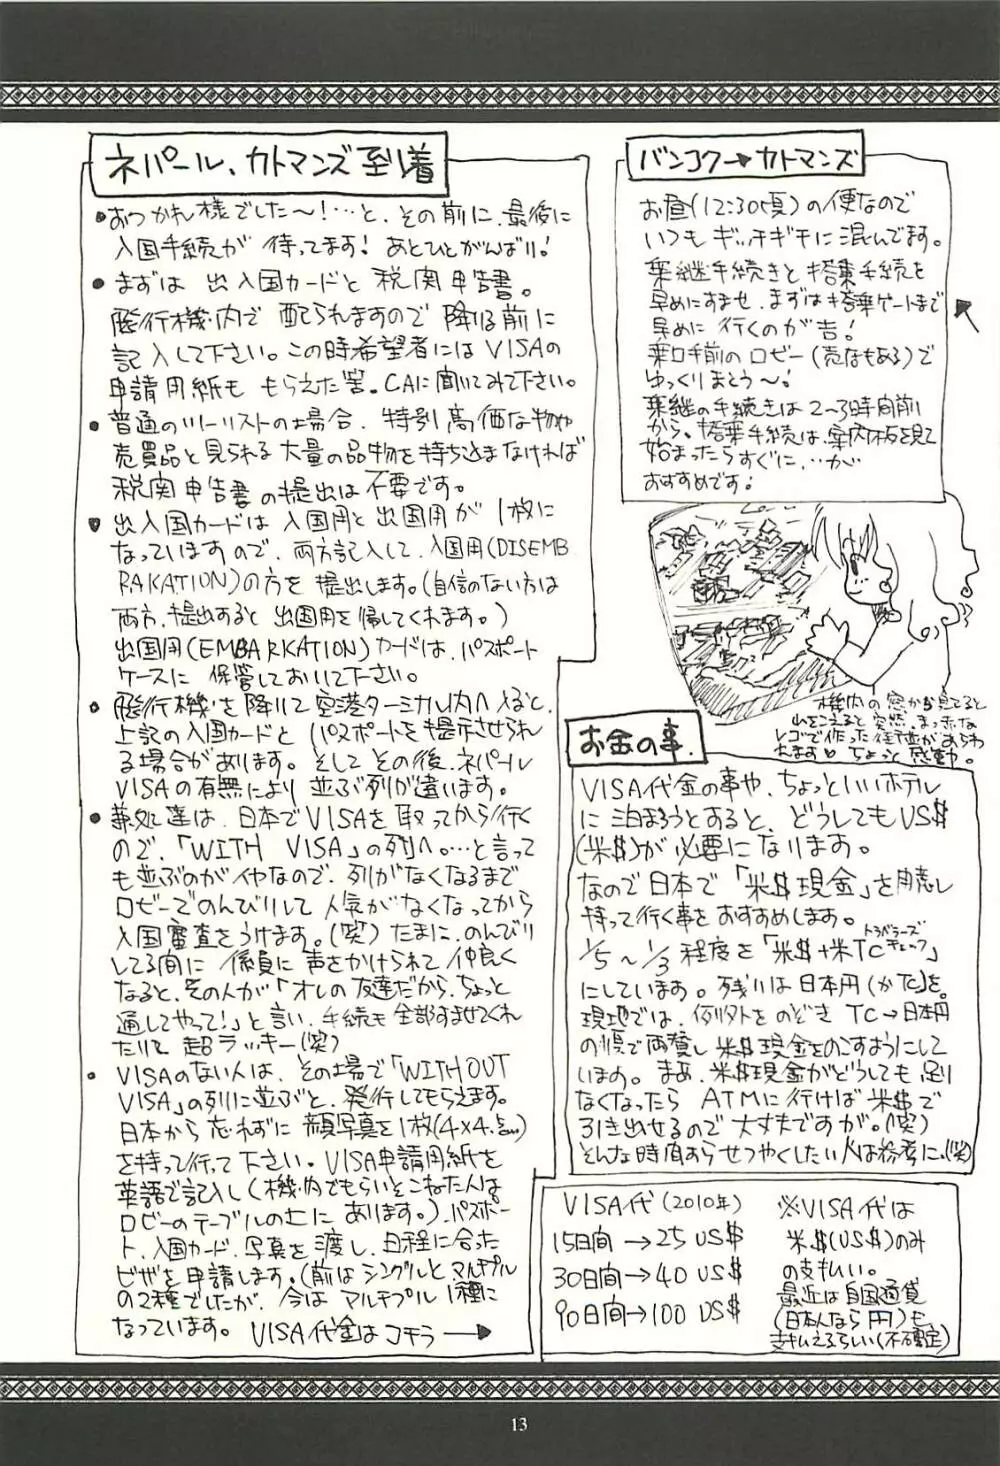 バンコク→カトマンズ
お昼(12:30頃)の便なので
いつもギッチギチに混んでます。
乗継手続きと搭乗手続を
早めにすませ、まずは搭乗ゲートまで
早めに行くのが吉!
乗口手前のロビー(売店もある)で
ゆっくりまとう〜!
乗継の手続きは2〜3時間前
から。搭乗手続は、案内板を見て
始まったらすぐに、…が
おすすめです!
機内の窓から見てると
山をこえると突然、まっ赤な
レゴで作った街並があらわ
れます♡ ちょっと感動。
ネパール、カトマンズ到着
●おつかれ様でした〜!…と、その前に、最後に
入国手続が 待ってます! あとひとがんばり!
●まずは 出入国カードと 税関申告書。
飛行機内で 配られますので 降りる前に
記入して下さい。この時希望者にはVISAの
申請用紙も もらえた筈。CAに聞いてみて下さい。
●普通のツーリストの場合、特別高価な物や
売買品と見られる大量の品物を持ち込まなければ
税関申告書の提出は不要です。
●出入国カードは 入国用と出国用が 1枚に
なっていますので、両方記入して、入国用(DISEMB
RAKATION)の方を 提出します。(自信のない方は
両方、提出すると 出国用を帰してくれます。)
出国用(EMBARKATION)カードは、パスポート
ケースに 保管しておいて下さい。
●飛行機を降りて空港ターミナル内へ入ると、
上記の入国カードと パスポートを提示させられ
る場合があります。そして その後、ネパール
VISAの有無により 並ぶ列が違います。
●兼処達は、日本でVISAを取ってから行く
ので、「WITH VISA」の列へ。…と言って
も並ぶのがイヤなので、列がなくなるまで
ロビーでのんびりして 人気がなくなってから
入国審査をうけます。(笑) たまに、のんびり
してる間に 係員に 声をかけられて 仲良く
なると、その人が「オレの友達だから、ちょっと
通してやって!」と言い、手続も全部すませてくれ
たりして 超ラッキー(笑)
●VISAのない人は、その場で「WITHOUT
VISA」の列に並ぶと、発行してもらえます。
日本から 忘れずに 顔写真を1枚(4×4.5cm)
を持って行って下さい。VISA申請用紙を
英語で記入し(機内でもらいそこねた人は
ロビーのテーブルの上に あります。)、パスポー
ト、入国カード、写真を 渡し、日程に合った
ビザを申請します。(前はシングルと マルチプル
の2種でしたが、今は マルチプル 1種に
なっています。 VISA代金はコチラ→
お金の事。
VISA代金の事や、ちょっといいホテル
に泊まろうとすると、どうしてもUS$
(米$)が必要になります。
なので日本で「米$現金」を用意し
持って行く事をおすすめします。
1/5〜1/3程度を「米$+米TC」
トラベラーズチェック
にしています。残りは日本円(かた)を。
現地では、例外をのぞき TC→日本円
の順で両替し 米$現金をのこすようにして
います。まぁ、米$現金がどうしても足り
なくなったら ATMに行けば 米$で
引き出せるので 大丈夫ですが。(笑)
そんな時間あらせつやくしたい人は参考に。(笑)
VISA代(2010年)
15日間→25 US$
30日間→40 US$
90日間→100 US$
※VISA代は
米$(US$)のみ
の支払い。
最近は自国通貨
(日本人なら円)も
支払えるらしい(不確定)
13